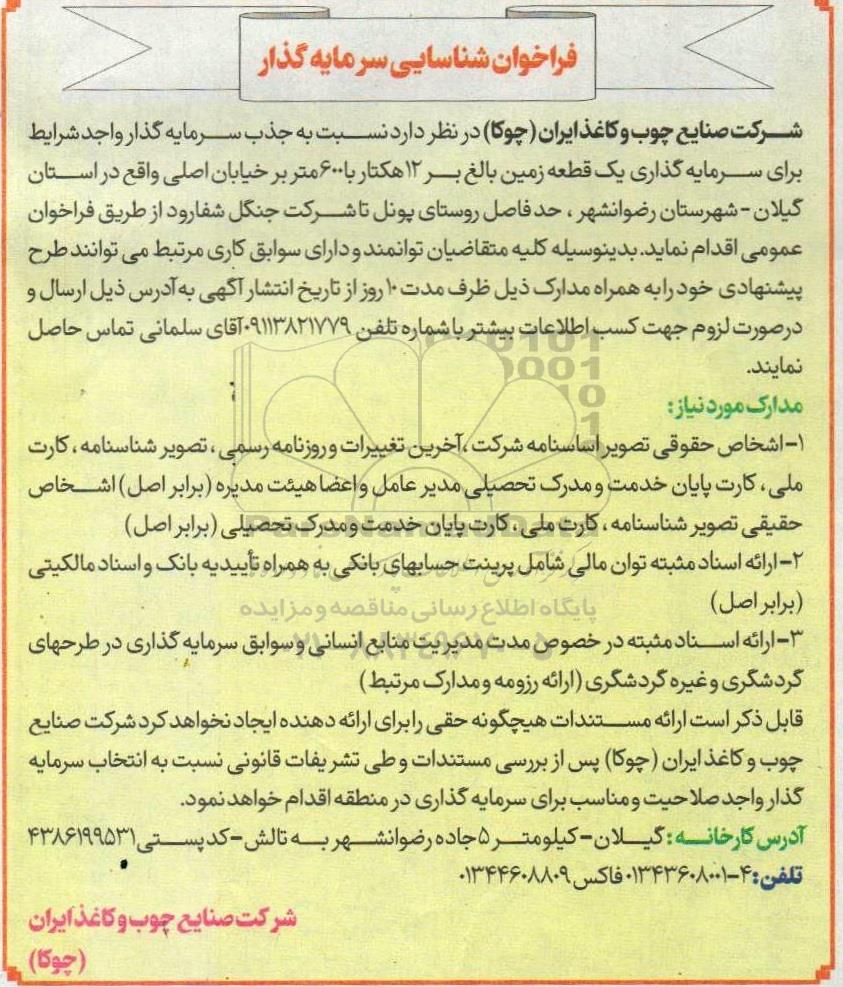 فراخوان شناسایی سرمایه گذار
شرکت صنایع چوب و کاغذ ایران (چوکا) در نظر دارد نسبت به جذب سرمایه گذار واجد شرایط
برای سرمایه گذاری یک قطعه زمین بالغ بر ۱۲ هکتار با ۶۰۰ متر بر خیابان اصلی واقع در استان
گیلان - شهرستان رضوانشهر ، حد فاصل روستای پونل تا شرکت جنگل شفارود از طریق فراخوان
عمومی اقدام نماید. بدینوسیله کلیه متقاضیان توانمند و دارای سوابق کاری مرتبط می توانند طرح
پیشنهادی خود را به همراه مدارک ذیل ظرف مدت ۱۰ روز از تاریخ انتشار آگهی به آدرس ذیل ارسال و
درصورت لزوم جهت کسب اطلاعات بیشتر با شماره تلفن ۰۹۱۱۳۸۲۱۷۷۹ آقای سلمانی تماس حاصل
نمایند.
مدارک مورد نیاز :
۱- اشخاص حقوقی تصویر اساسنامه شرکت ،آخرین تغییرات و روزنامه رسمی ، تصویر شناسنامه ، کارت
ملی ، کارت پایان خدمت و مدرک تحصیلی مدیر عامل و اعضا هیئت مدیره (برابر اصل) اشخاص
حقیقی تصویر شناسنامه ، کارت ملی ، کارت پایان خدمت و مدرک تحصیلی (برابر اصل)
۲- ارائه اسناد مثبته توان مالی شامل پرینت حسابهای بانکی به همراه تأییدیه بانک و اسناد مالکیتی
(برابر اصل)
پایگاه اطلاع رسانی مناقصه و مزایده
۳- ارائه اسناد مثبته در خصوص مدت مدیریت منابع انسانی و سوابق سرمایه گذاری در طرحهای
گردشگری و غیره گردشگری (ارائه رزومه و مدارک مرتبط )
قابل ذکر است ارائه مستندات هیچگونه حقی را برای ارائه دهنده ایجاد نخواهد کرد شرکت صنایع
چوب و کاغذ ایران (چوکا) پس از بررسی مستندات و طی تشریفات قانونی نسبت به انتخاب سرمایه
گذار واجد صلاحیت و مناسب برای سرمایه گذاری در منطقه اقدام خواهد نمود.
آدرس کارخانه : گیلان - کیلومتر ۵ جاده رضوانشهر به تالش - کدپستی ۴۳۸۶۱۹۹۵۳۱
تلفن: ۴-۰۱۳۴۳۶۰۸۰۰۱ فاکس ۰۱۳۴۴۶۰۸۸۰۹
شرکت صنایع چوب و کاغذ ایران
(چوکا)